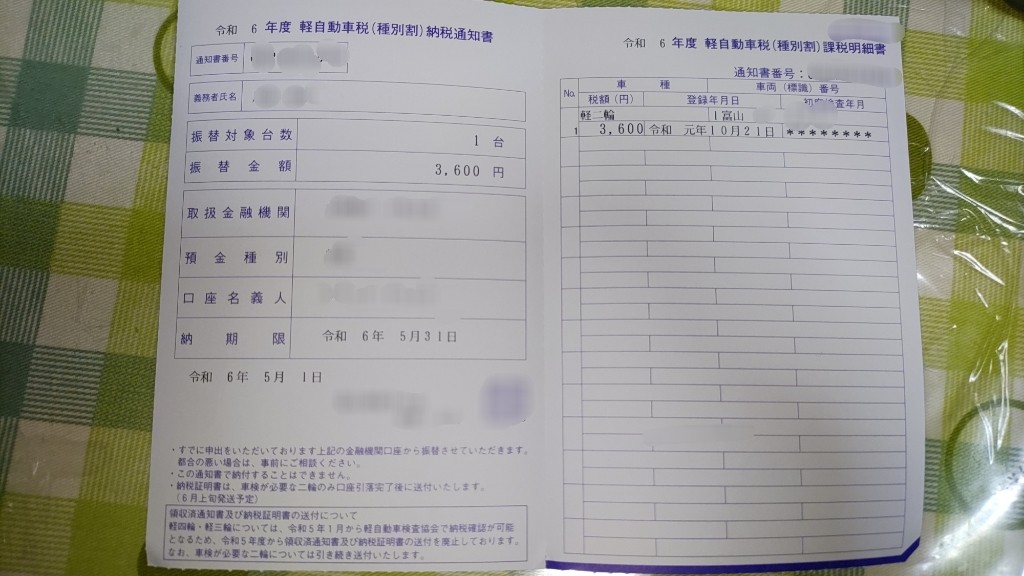 令和 6 年度 軽自動車税(種別割)納税通知書
通知書番号
義務者氏名
振替対象台数 1 台
振替金額 3,600 円
取扱金融機関
預金種別
口座名義人
納期限 令和 6年 5月31日
令和 6年 5月 1日
・すでに申出をいただいております上記の金融機関口座から振替させていただきます。
都合の悪い場合は、事前にご相談ください。
・この通知書で納付することはできません。
・納税証明書は、車検が必要な二輪のみ口座引落完了後に送付いたします。
(6月上旬発送予定)
領収済通知書及び納税証明書の送付について
軽四輪・軽三輪については、令和5年1月から軽自動車検査協会で納税確認が可能
となるため、令和5年度から領収済通知書及び納税証明書の送付を廃止しております。
なお、車検が必要な二輪については引き続き送付いたします。
令和 6 年度 軽自動車税(種別割)課税明細書
通知書番号:
No. 車種 車両(標識)番号
税額(円) 登録年月日 初度検査年月
軽二輪 1富山
1 3,600 令和 元年10月21日 ********